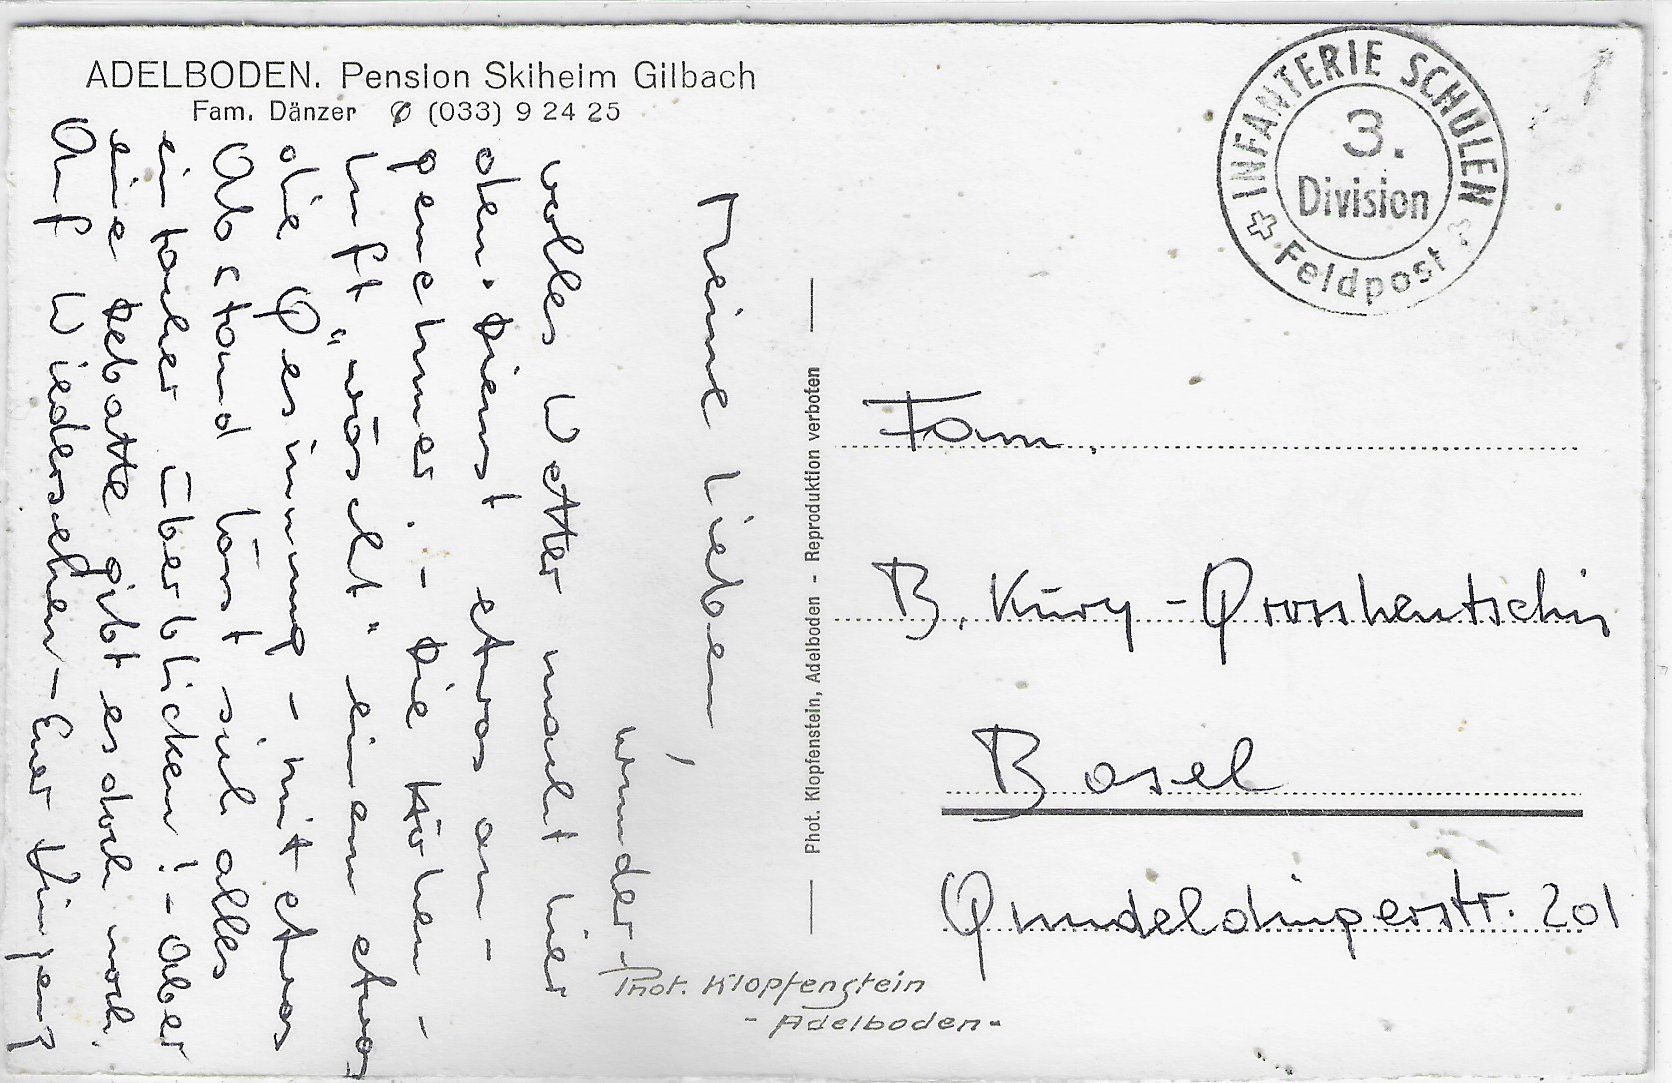 ADELBODEN. Pension Skiheim Gilbach
Fam. Dänzer (033) 9 24 25
Meine Lieben,
wunder-
volles Wetter macht hier
den Dienst etwas an-
genehmer. - Die Höhen-
luft "wäscht" einem etwas
die Gesinnung - mit etwas
Abstand lässt sich alles
einfacher überblicken! - Aber
eine Debatte gibt es doch noch.
Auf Wiedersehen - Euer
Phot. Klopfenstein, Adelboden - Reproduktion verboten
Phot. Klopfenstein
- Adelboden -
INFANTERIE SCHULEN
3.
Division
Feldpost
Fam.
B. Kury - Grosshentschin
Basel
Gundeldingerstr. 201